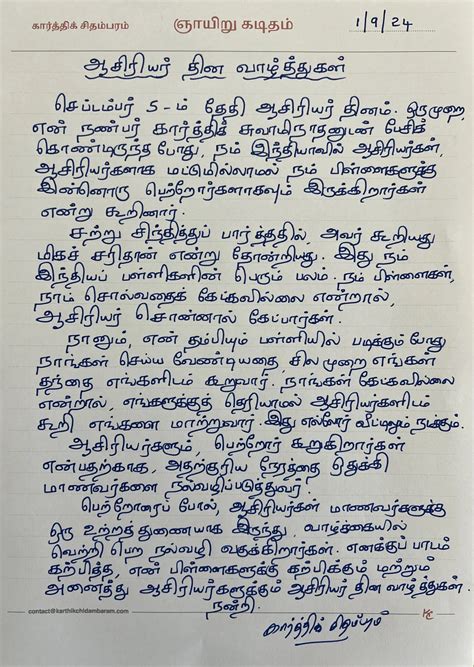 கார்த்திக் சிதம்பரம்
ஞாயிறு கடிதம்
1/9/24
ஆசிரியர் தின வாழ்த்துகள்
செப்டம்பர் 5-ம் தேதி ஆசிரியர் தினம். ஒருமுறை,
என் நண்பர் கார்த்திக் சுவாமிநாதனுடன் பேசிக்
கொண்டிருந்த போது, நம் இந்தியாவில் ஆசிரியர்கள்,
ஆசிரியர்களாக மட்டுமில்லாமல் நம் பிள்ளைகளுக்கு
இன்னொரு பெற்றோர்களாகவும் இருக்கிறார்கள்
என்று கூறினார்.
சற்று சிந்தித்துப் பார்த்ததில், அவர் கூறியது
மிகச் சரிதான் என்று தோன்றியது. இது நம்
இந்தியப் பள்ளிகளின் பெரும் பலம். நம் பிள்ளைகள்,
நாம் சொல்வதைக் கேட்கவில்லை என்றால்,
ஆசிரியர் சொன்னால் கேட்பார்கள்.
நானும், என் தம்பியும் பள்ளியில் படிக்கும் போது
நாங்கள் செய்ய வேண்டியதை, சில முறை எங்கள்
தந்தை எங்களிடம் கூறுவார். நாங்கள் கேட்கவில்லை
என்றால், எங்களுக்குத் தெரியாமல் ஆசிரியர்களிடம்
கூறி எங்களை மாற்றுவார். இது எல்லோர் வீட்டிலும் நடக்கும்.
ஆசிரியர்களும், பெற்றோர் கூறுகிறார்கள்
என்பதற்காக, அதற்குரிய நேரத்தை ஒதுக்கி
மாணவர்களை நல்வழிப்படுத்துவர்.
பெற்றோரைப் போல், ஆசிரியர்கள் மாணவர்களுக்கு
ஒரு உற்றத்துணையாக இருந்து, வாழ்க்கையில்
வெற்றி பெற நல்வழி வகுக்கிறார்கள். எனக்குப் பாடம்
கற்பித்த, என் பிள்ளைகளுக்கு கற்பிக்கும் மற்றும்
அனைத்து ஆசிரியர்களுக்கும் ஆசிரியர் தின வாழ்த்துகள்.
நன்றி.
கார்த்திக் சிதம்பரம்
contact@karthikchidambaram.com
KC